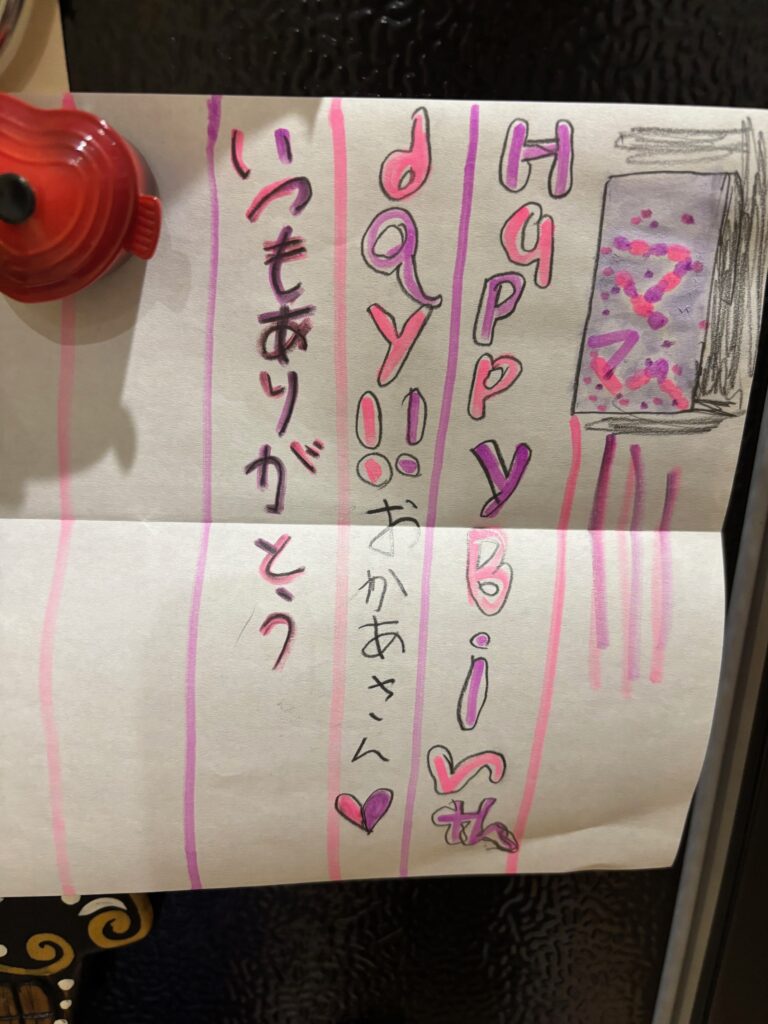 ママへ
Happy Birth
day!!おかあさん♥
いつもありがとう